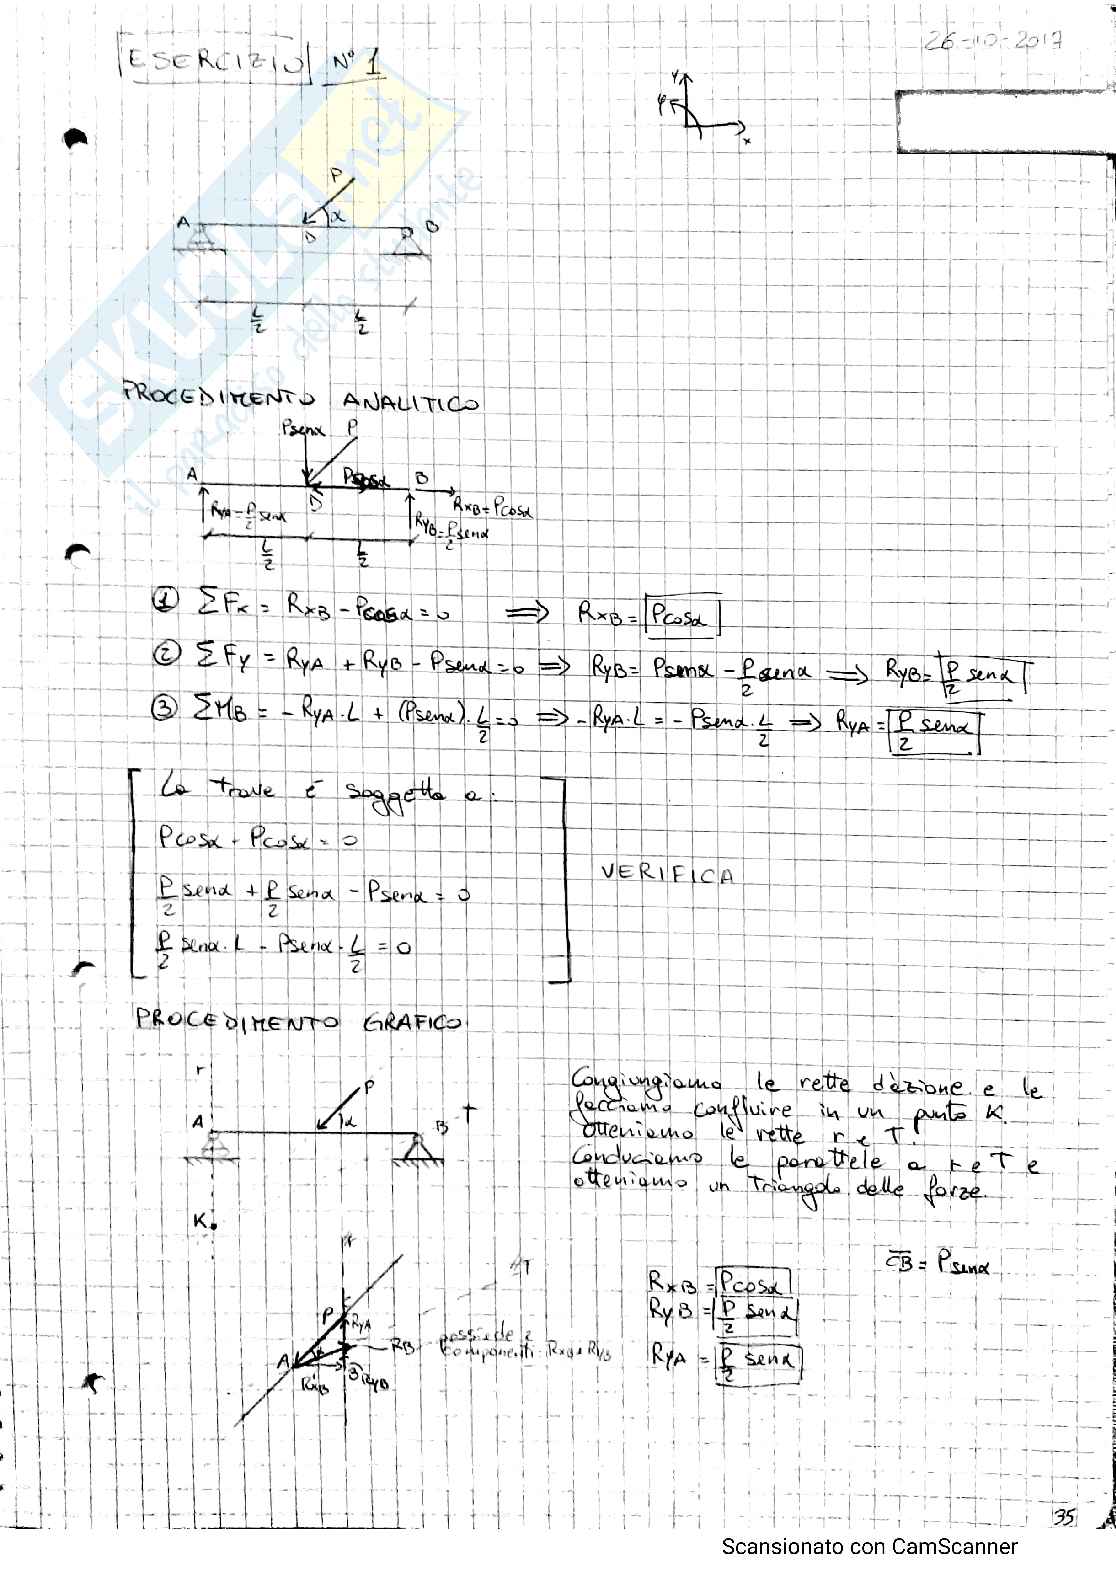 26-10-2017
ESERCIZIO N° 1
Y
φ
x
P
A
α
D
B
L/2 L/2
SKUOLA.net
il paradiso dello studente
PROCEDIMENTO ANALITICO
Psenα P
A
Pcosα
B
D
RxB=Pcosα
RyA=P/2 senα
RyB=P/2 senα
L/2 L/2
① ΣFx = RxB - Pcosα = 0 ⟹ RxB = Pcosα
② ΣFy = RyA + RyB - Psenα = 0 ⟹ RyB = Psenα - P/2 senα ⟹ RyB = P/2 senα
③ ΣMB = - RyA · L + (Psenα) · L/2 = 0 ⟹ - RyA · L = - Psenα · L/2 ⟹ RyA = P/2 senα
La trave é soggetta a:
Pcosα - Pcosα = 0
P/2 senα + P/2 senα - Psenα = 0
P/2 senα · L - Psenα · L/2 = 0
VERIFICA
PROCEDIMENTO GRAFICO
r
P
A
α
B
T
K
Congiungiamo le rette d'azione e le
facciamo confluire in un punto K.
Otteniamo le rette r e T.
Conduciamo le parallele a r e T e
otteniamo un Triangolo delle forze.
r
T
P
RyA
A
RB possiede 2
componenti: RxB e RyB
RxB
B
RyB
RxB = Pcosα
RyB = P/2 senα
RyA = P/2 senα
CB = Psenα
35
Scansionato con CamScanner